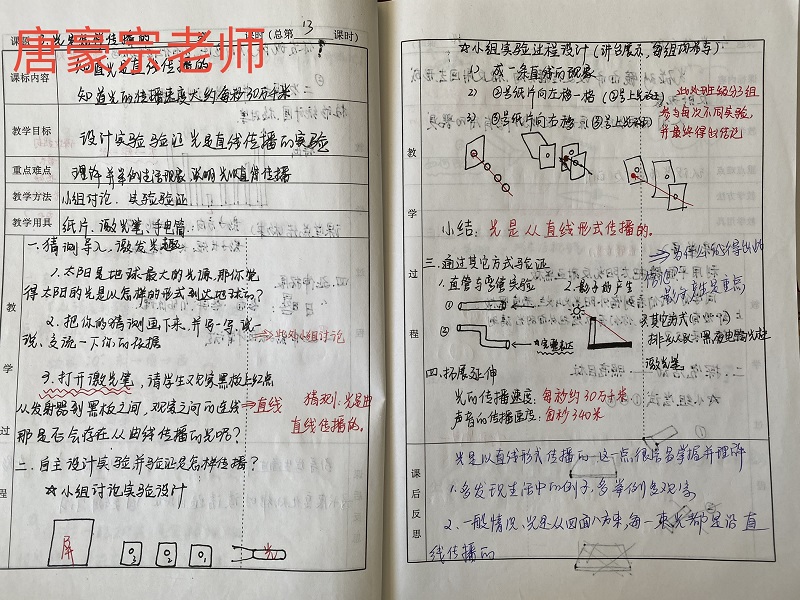 唐豪宗老师
课题 3.光是怎样传播的 课时(总第 13 课时)
课标内容
知道光是直线传播的
知道光的传播速度大约每秒30万千米
教学目标
设计实验验证光是直线传播的实验
重点难点
理解并举例生活现象说明光以直线传播
教学方法
小组讨论、实验验证
教学用具
纸片、激光笔、手电筒
教学过程
一.猜测导入,激发兴趣
1.太阳是地球最大的光源,那你觉
得太阳的光是以怎样的形式到达地球的?
2、把你的猜测画下来,并写一写,说一
说、交流一下你的依据
小组讨论
3.打开激光笔,请学生观察黑板上红点
从发射器到黑板之间,观察之间的连线⇒直线
猜测:光是由
直线传播的。
那是否会存在从曲线传播的光呢?
二.自主设计实验并验证是怎样传播?
☆小组讨论实验设计
屏
③ ② ① 光
教学过程
☆小组实验过程设计(讲台展示,每组两名学生)
1) 成一条直线的现象
2) ②号纸片向左移一格
3) ③号纸片向右移
此处班级分3组
参与每次不同实验,
并最终得出结论
小结:光是从直线形式传播的。
三.通过其它方式验证
1.直管与弯管实验
2.影子的产生
① ②
☆实验表达
3.其它方式
激光笔
四.拓展延伸
光的传播速度:每秒约30万千米
声音的传播速度:每秒340米
课后反思
光是以直线形式传播的这一点,很容易掌握并理解
1.多发现生活中的例子,多举例多观察
2、一般情况,光是从四面八方来,每一束光都是沿直
线传播的